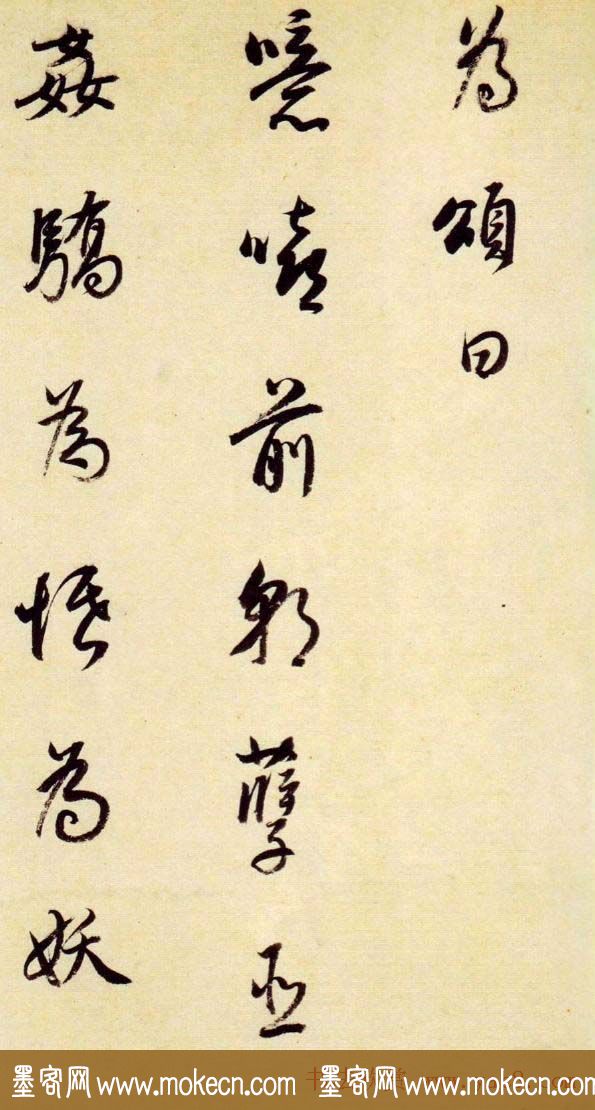 為頌曰
噫嘻前朝孽臣
姦驕為惛為妖
墨客网 www.mokecn.com 墨客网 www.mokecn.com